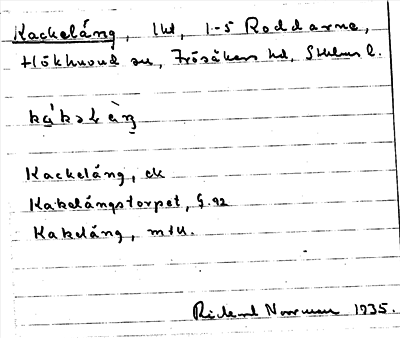 Kackeláng, lht, 1-5 Roddarne,
Hökhuvud sn, Frösåkers hd, Sthlms l.
Kackeláng, ek
Kakelángstorpet, G. 92
Kakeláng, mtl.
Rickard Norrman 1935.